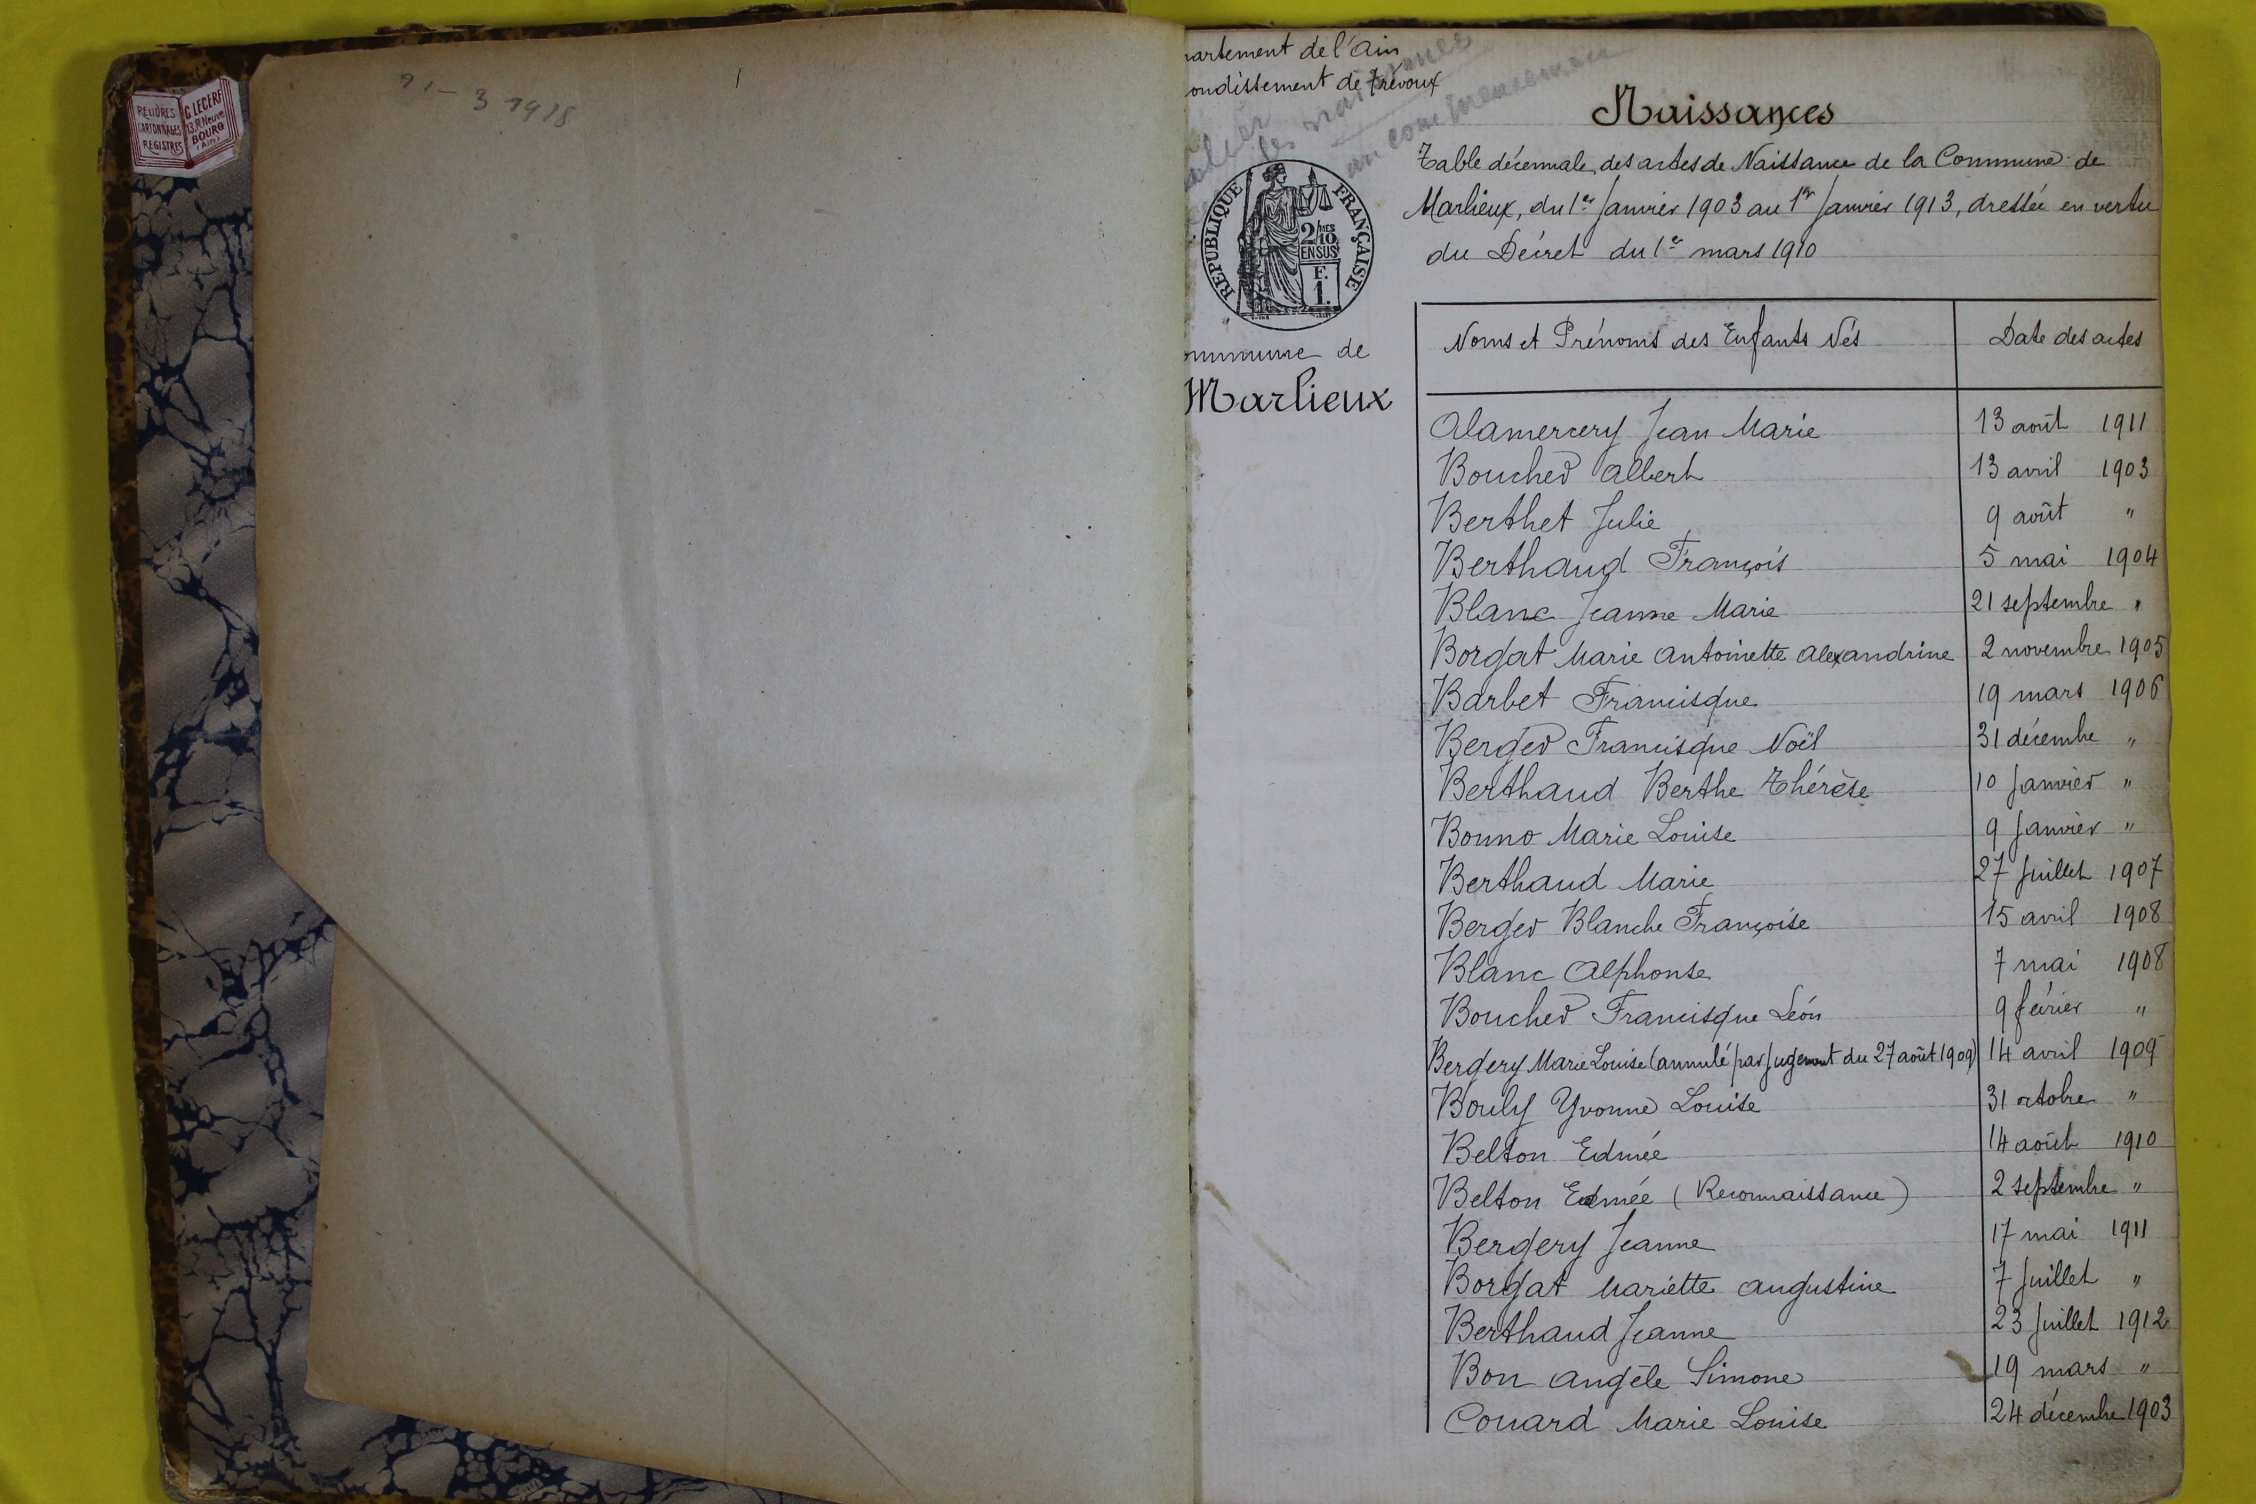 RELIURES
CARTONNAGES
REGISTRES
C. LECERF
13, R. Neuve
BOURG
(Ain)
3 1918
1
partement de l'Ain
ondissement de Trévoux
Naissances
Table décennale des actes de Naissance de la Commune de
Marlieux, du 1er Janvier 1903 au 1er Janvier 1913, dressée en vertu
du Décret du 1er mars 1910
RÉPUBLIQUE FRANÇAISE
2/10 MES
EN SUS
F.
1.
ommune de
Marlieux
Noms et Prénoms des Enfants Nés Date des actes
Alamercery Jean Marie 13 août 1911
Boucher Albert 13 avril 1903
Berthet Julie 9 août "
Berthaud François 5 mai 1904
Blanc Jeanne Marie 21 septembre "
Borgat Marie Antoinette Alexandrine 2 novembre 1905
Barbet Francisque 19 mars 1906
Berger Francisque Noël 31 décembre "
Berthaud Berthe Thérèse 10 Janvier "
Bonno Marie Louise 9 Janvier "
Berthaud Marie 27 Juillet 1907
Berger Blanche Françoise 15 avril 1908
Blanc Alphonse 7 mai 1908
Boucher Francisque Léon 9 février "
Bergery Marie Louise (annulé par jugement du 27 août 1909) 14 avril 1909
Bouly Yvonne Louise 31 octobre "
Belton Edmée 14 août 1910
Belton Edmée (Reconnaissance) 2 septembre "
Bergery Jeanne 17 mai 1911
Borgat Mariette Augustine 7 Juillet "
Berthaud Jeanne 23 Juillet 1912
Bon Angèle Simone 19 mars "
Couard Marie Louise 24 décembre 1903